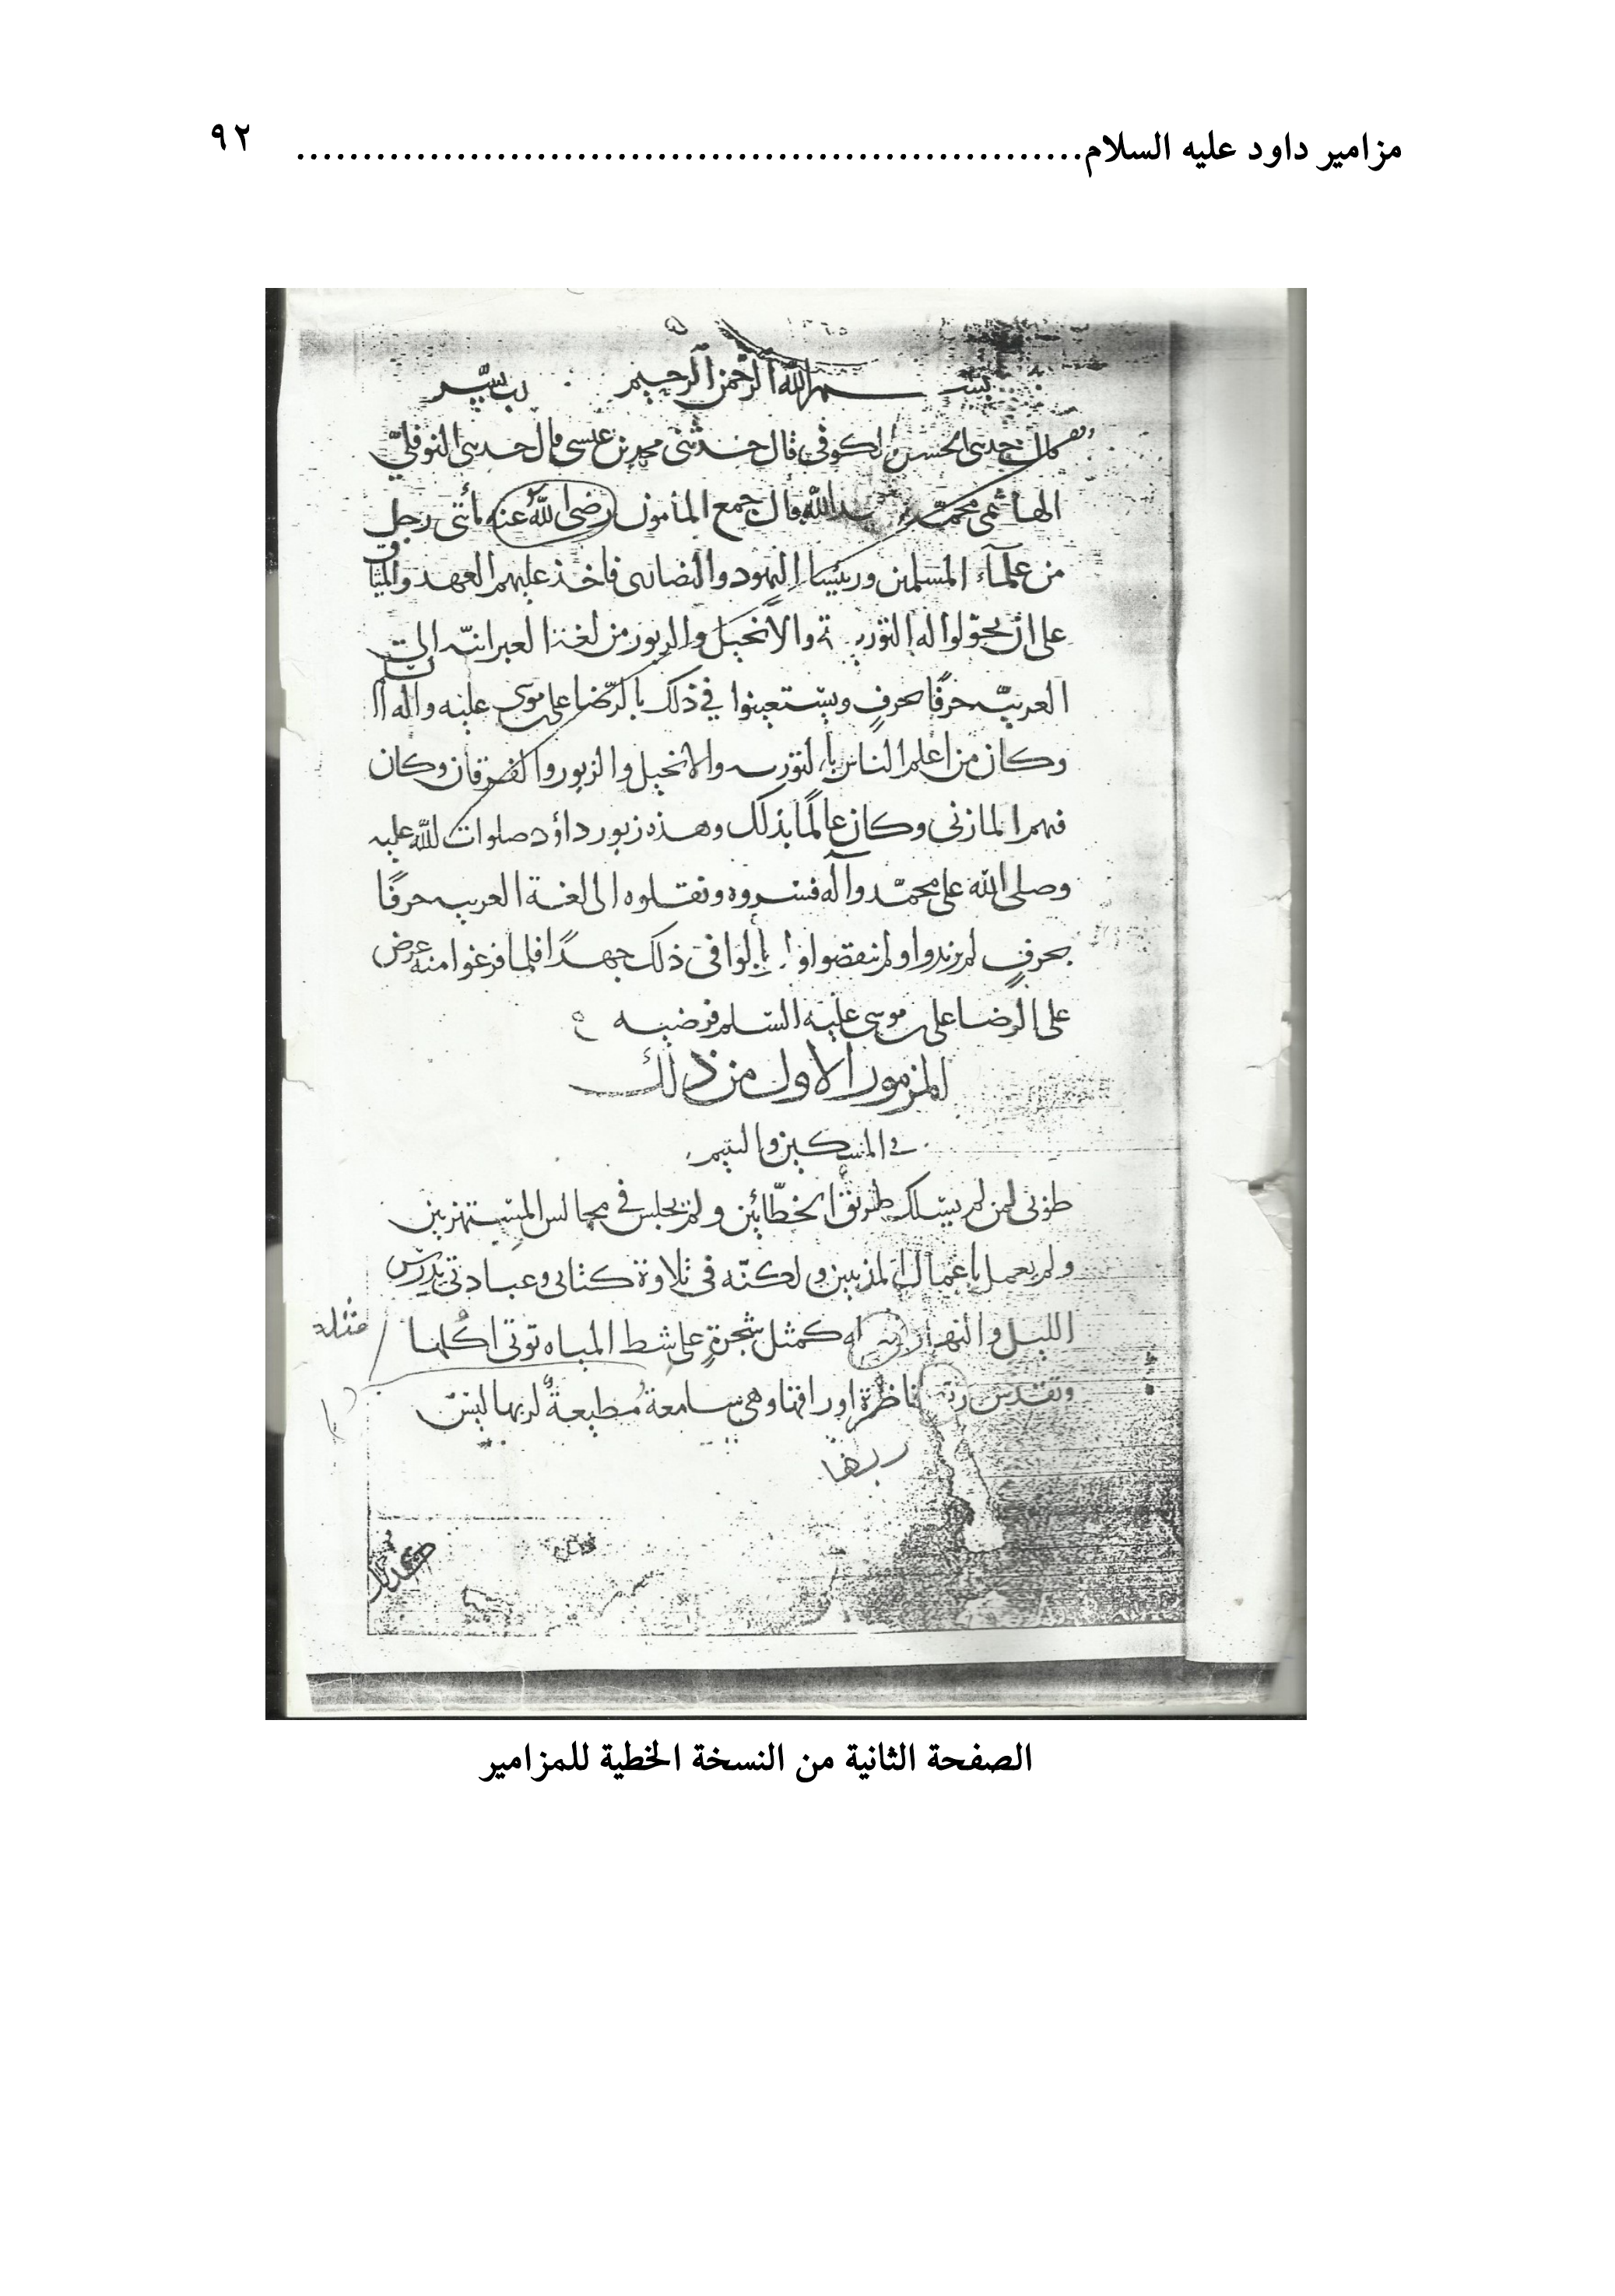 مزامير داود عليه السلام............................................................ ٩٢
بسم الله الرحمن الرحيم رب يسّر
قال حدثني الحسن الكوفي قال حدثني محمد بن عيسى قال حدثني النوفليّ
الهاشمي محمد بن عبد الله قال جمع المأمون رضي الله عنه مأتى رجل
من علمآء المسلمين ورئيسا اليهود والنصارى فاخذ عليهم العهد والميثاق
على ان يحوّلوا له التورية والانجيل والزبور من لغة العبرانيّه الى
العربيّه حرفًا بحرفٍ ويستعينوا في ذلك بالرّضا على بن موسى عليه واله
وكان من اعلم الناس بالتوريه والانجيل والزبور والفرقان وكان
فيهم المازنى وكان عالمًا بذلك وهذه زبور داؤد صلوات الله عليه
وصلى الله على محمّد وآله فسروه ونقلوه الى لغة العربيه حرفًا
بحرفٍ لم يزيدوا ولم ينقصوا و يالوا في ذلك جهدًا فلما فرغوا منه عرض
على الرضا على بن موسى عليه السّلم فرضيه
المزمور الاول من ذلك
في المسكين واليتيم
طوبى لمن لم يسلك طريق الخطّائين ولم يجلس في مجالس المستهزئين
ولم يعمل باعمال المذنبين ولكنّه في تلاوة كتابى وعبادتى يدرس
الليل والنهار كمثل شجرةٍ على شط المياه توتى اكُلها
مثله
وتقدس ربها ناظرة اوراقها وهي سامعةٌ مُطيعةٌ لربها ليس
ربها
الصفحة الثانية من النسخة الخطية للمزامير